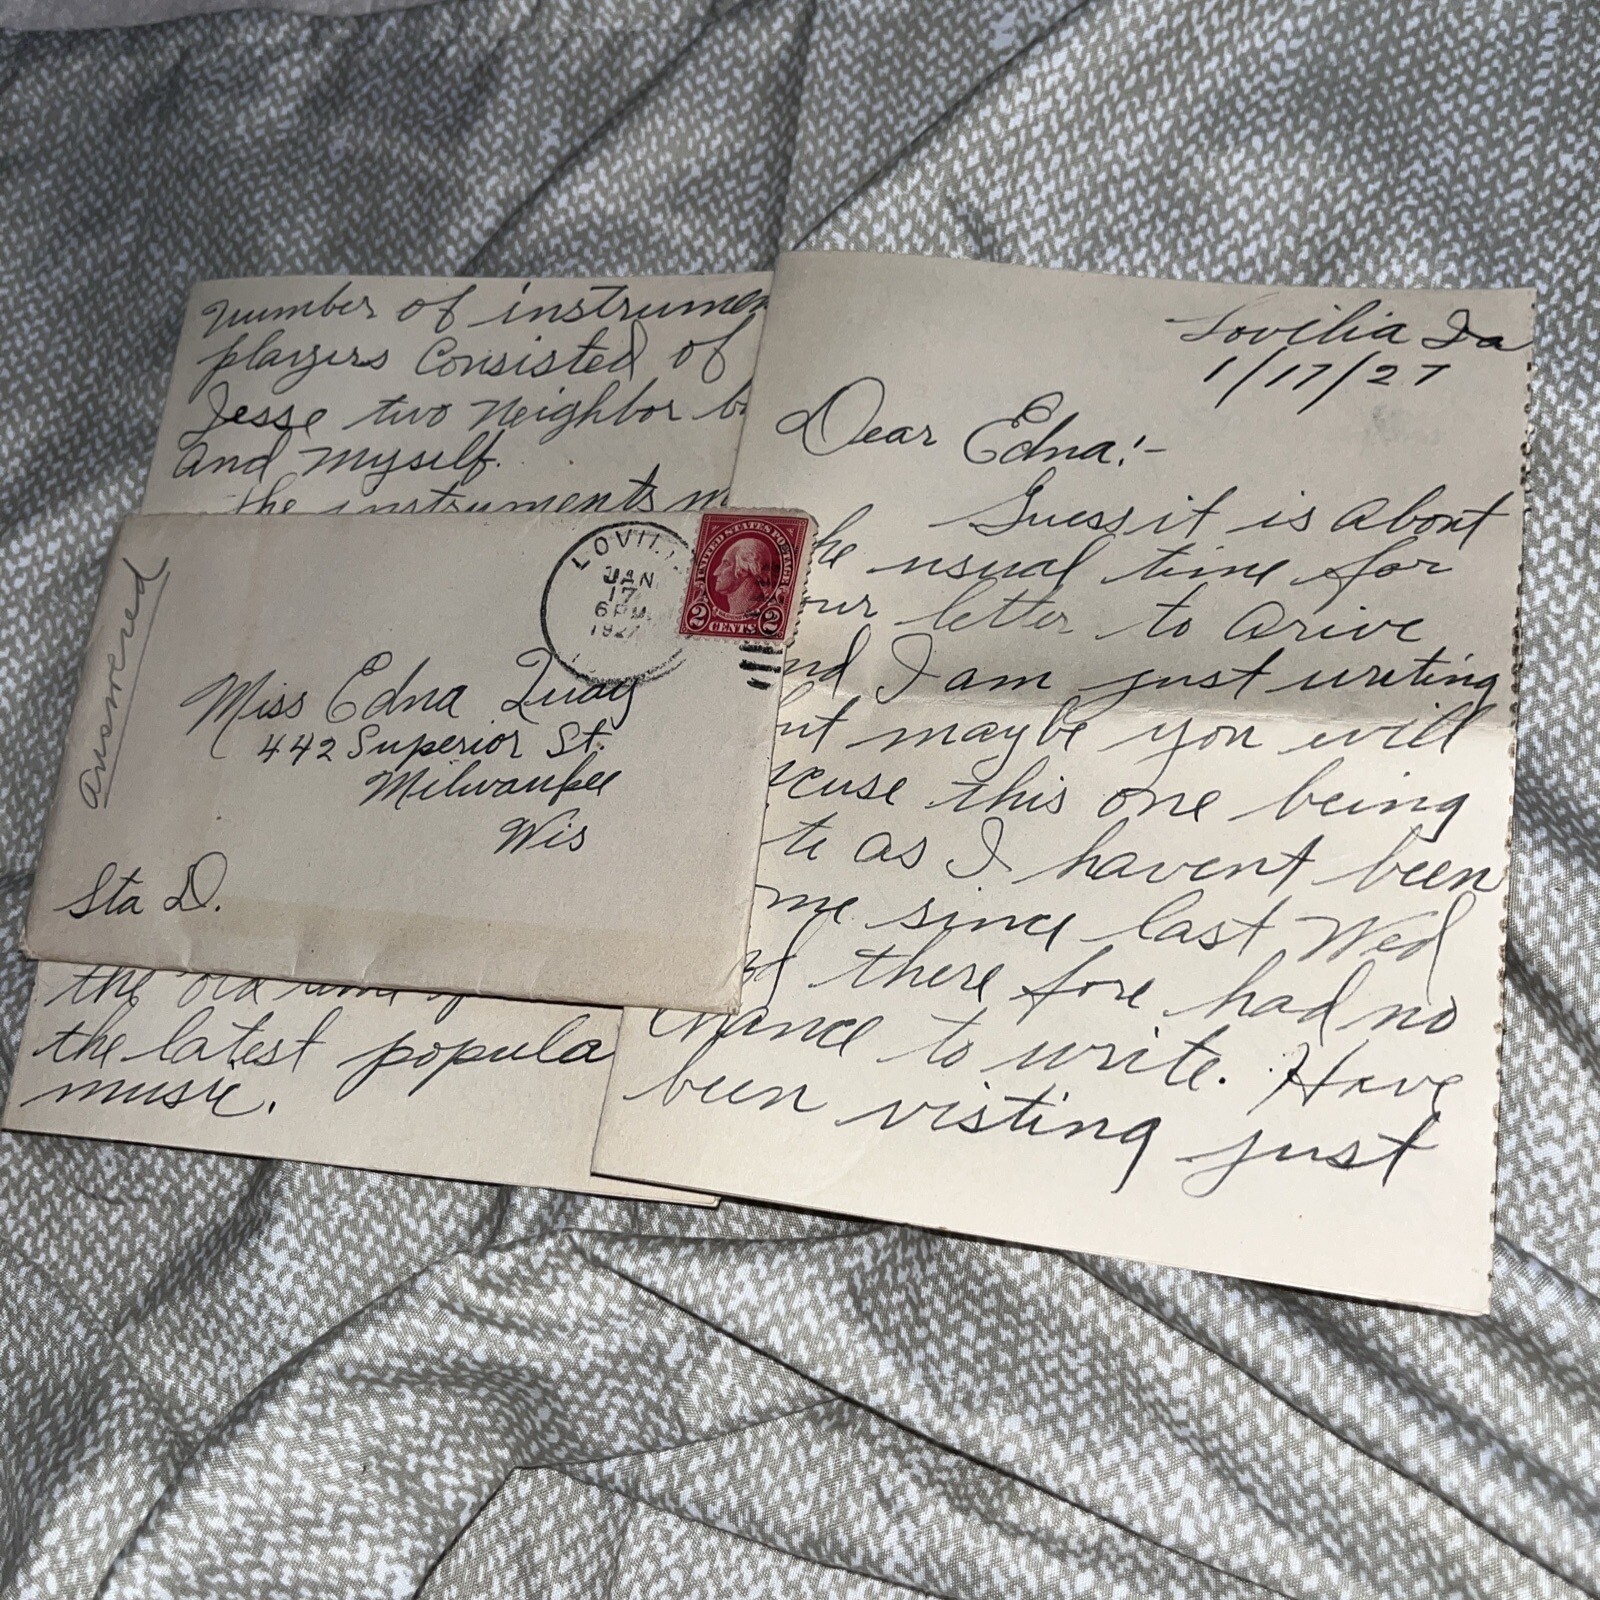 number of instrumen
players Consisted of
Jesse two Neighbor b
and myself.
the instruments
the latest popula
music.
answered
LOVIL
JAN
17
6 PM
1927
UNITED STATES POSTAGE
2 CENTS 2
Miss Edna Quay
442 Superior St.
Milwaukee
Wis
Sta D.
Lovilia Ia
1/17/27
Dear Edna:-
Guess it is about
he usual time for
our letter to arive
nd I am just writing
ut maybe you will
xcuse this one being
te as I havent been
me since last Wed
nd there fore had no
Chance to write. Have
been visting just